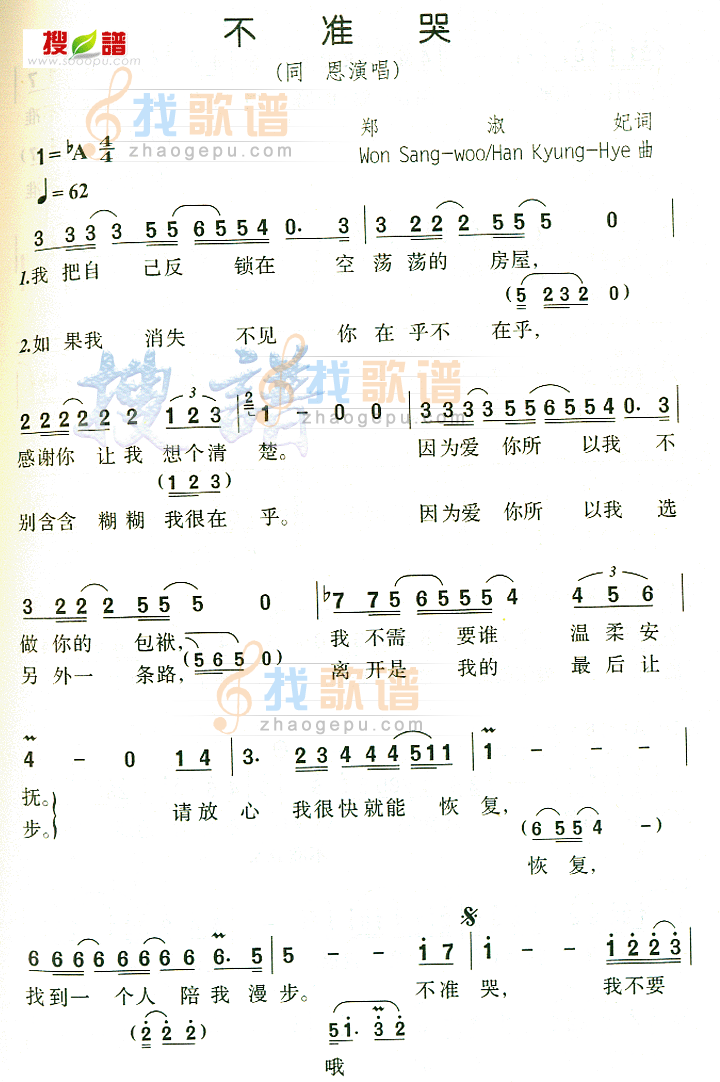 搜谱
www.sooopu.com
不 准 哭
(同 恩演唱)
找歌谱
zhaogepu.com
郑 淑 妃词
1=♭A 4/4
Won Sang-woo/Han Kyung-Hye 曲
♩=62
3 3 3 3 3 5 5 6 5 5 4 0. 3 | 3 2 2 2 5 5 5 0 |
1.我 把自 己反 锁在 空 荡 荡的 房屋,
(5 2 3 2 0)
2.如 果我 消失 不见 你 在 乎不 在乎,
搜谱
找歌谱
zhaogepu.com
2 2 2 2 2 2 2 1 2 3 | 2 1 - 0 0 | 3 3 3 3 5 5 6 5 5 4 0. 3 |
感谢你 让我 想个清 楚。 因为爱 你所 以我 不
(1 2 3)
别含含 糊糊 我很在 乎。 因为爱 你所 以我 选
3 2 2 2 5 5 5 0 | ♭7 7 5 6 5 5 5 4 4 5 6 |
做 你的 包袱, 我 不需 要谁 温柔安
(5 6 5 0)
另 外一 条路, 离 开是 我的 最后让
找歌谱
zhaogepu.com
4 - 0 1 4 | 3. 2 3 4 4 4 5 1 1 | 1 - - - |
抚。 请放 心 我很快就能 恢复,
步。
(6 5 5 4 -)
恢复,
6 6 6 6 6 6 6 6 6. 5 | 5 - - 1 7 | 1 - - 1 2 2 3 |
找到一 个人 陪我 漫步。 不准 哭, 我不要
(2 2 2)
5 1. 3 2
哦